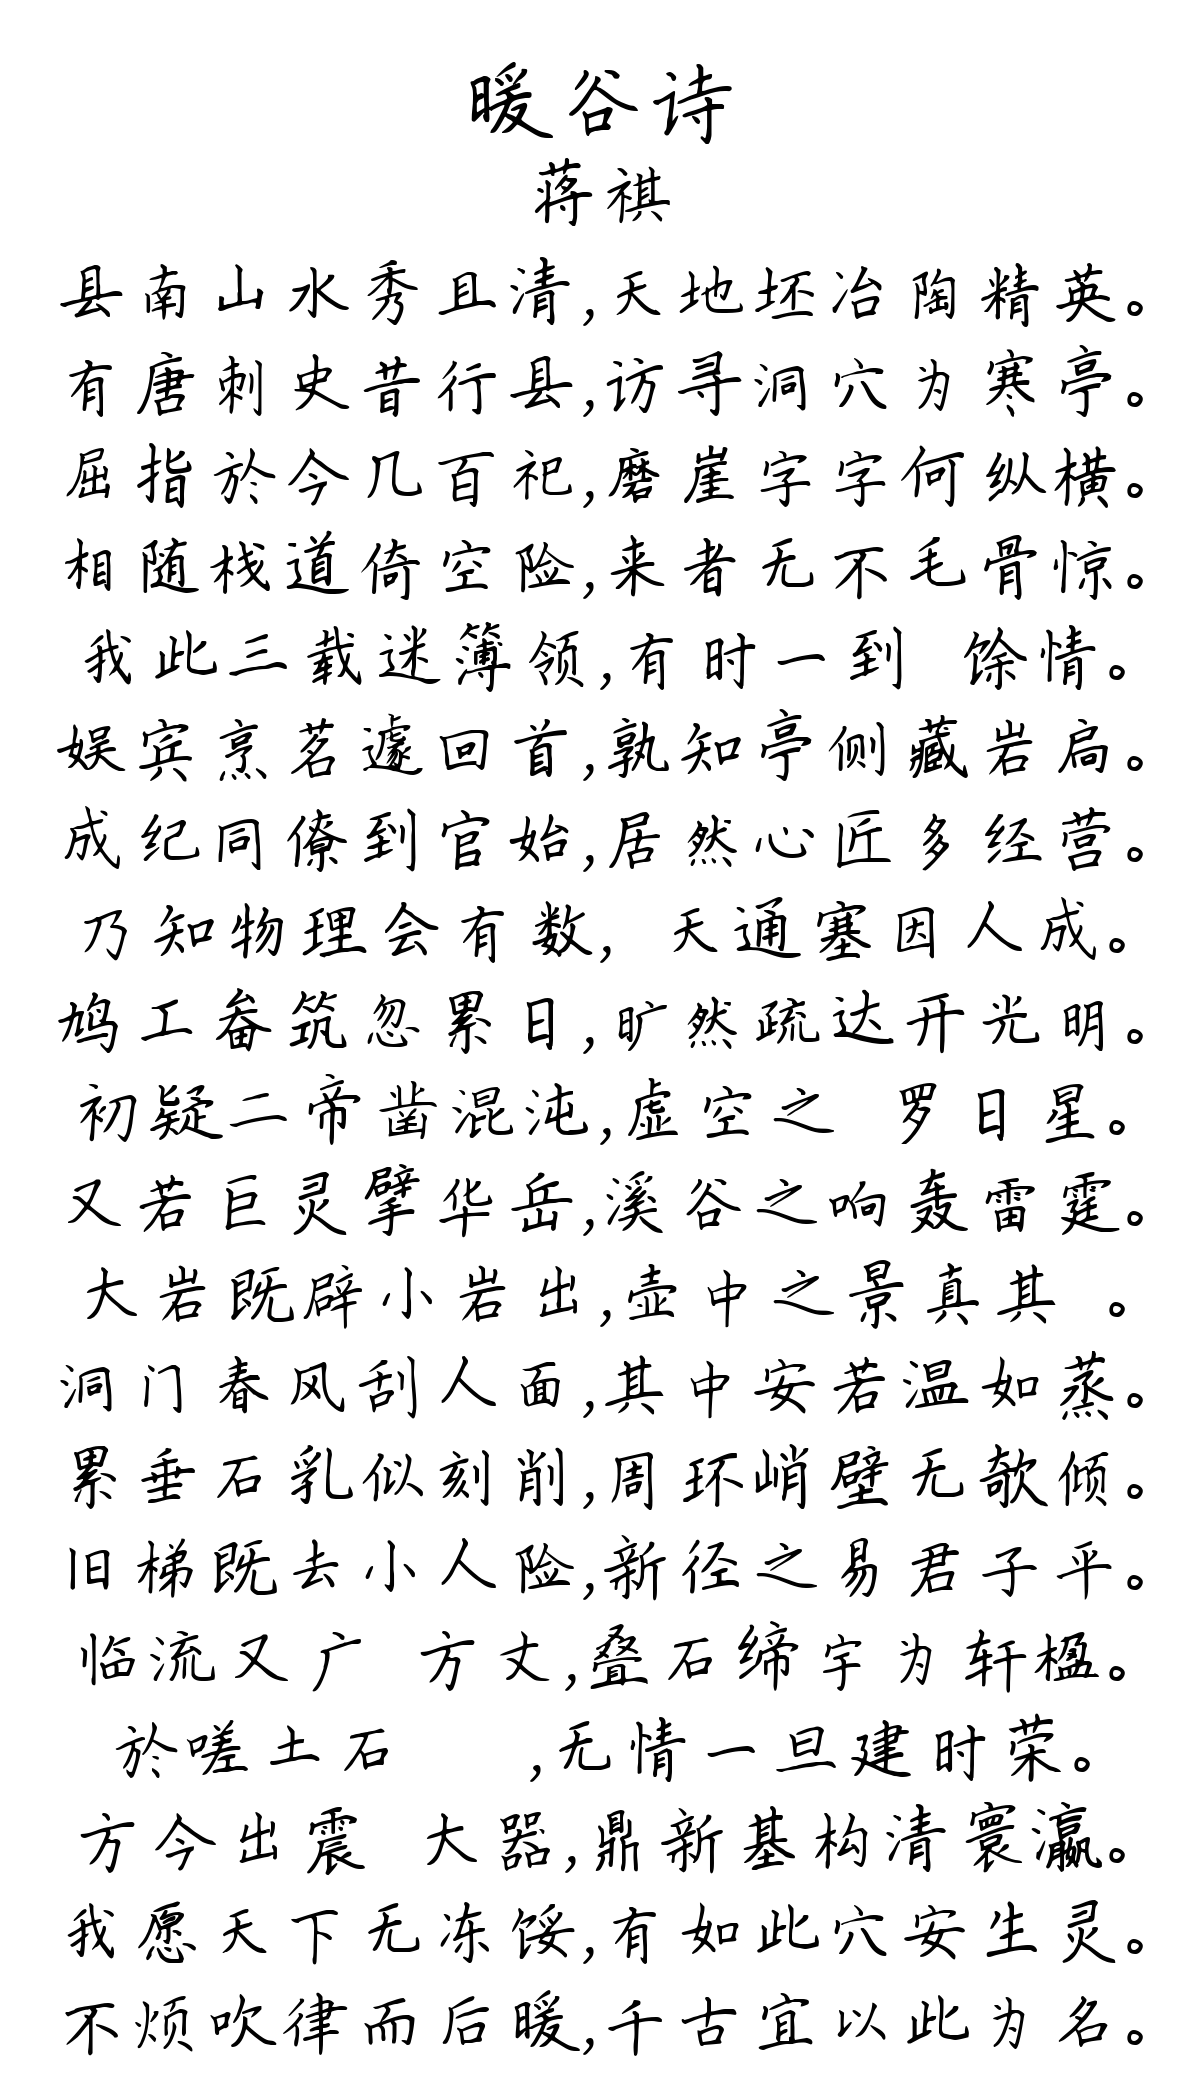 暖谷诗
蒋祺
县南山水秀且清,天地坯冶陶精英。
有唐刺史昔行县,访寻洞穴为寒亭。
屈指於今几百祀,磨崖字字何纵横。
相随栈道倚空险,来者无不毛骨惊。
我此三载迷簿领,有时一到 馀情。
娱宾烹茗遽回首,孰知亭侧藏岩扃。
成纪同僚到官始,居然心匠多经营。
乃知物理会有数, 天通塞因人成。
鸠工畚筑忽累日,旷然疏达开光明。
初疑二帝凿混沌,虚空之 罗日星。
又若巨灵擘华岳,溪谷之响轰雷霆。
大岩既辟小岩出,壶中之景真其 。
洞门春风刮人面,其中安若温如蒸。
累垂石乳似刻削,周环峭壁无欹倾。
旧梯既去小人险,新径之易君子平。
临流又广 方丈,叠石缔宇为轩楹。
於嗟土石 ,无情一旦建时荣。
方今出震 大器,鼎新基构清寰瀛。
我愿天下无冻馁,有如此穴安生灵。
不烦吹律而后暖,千古宜以此为名。